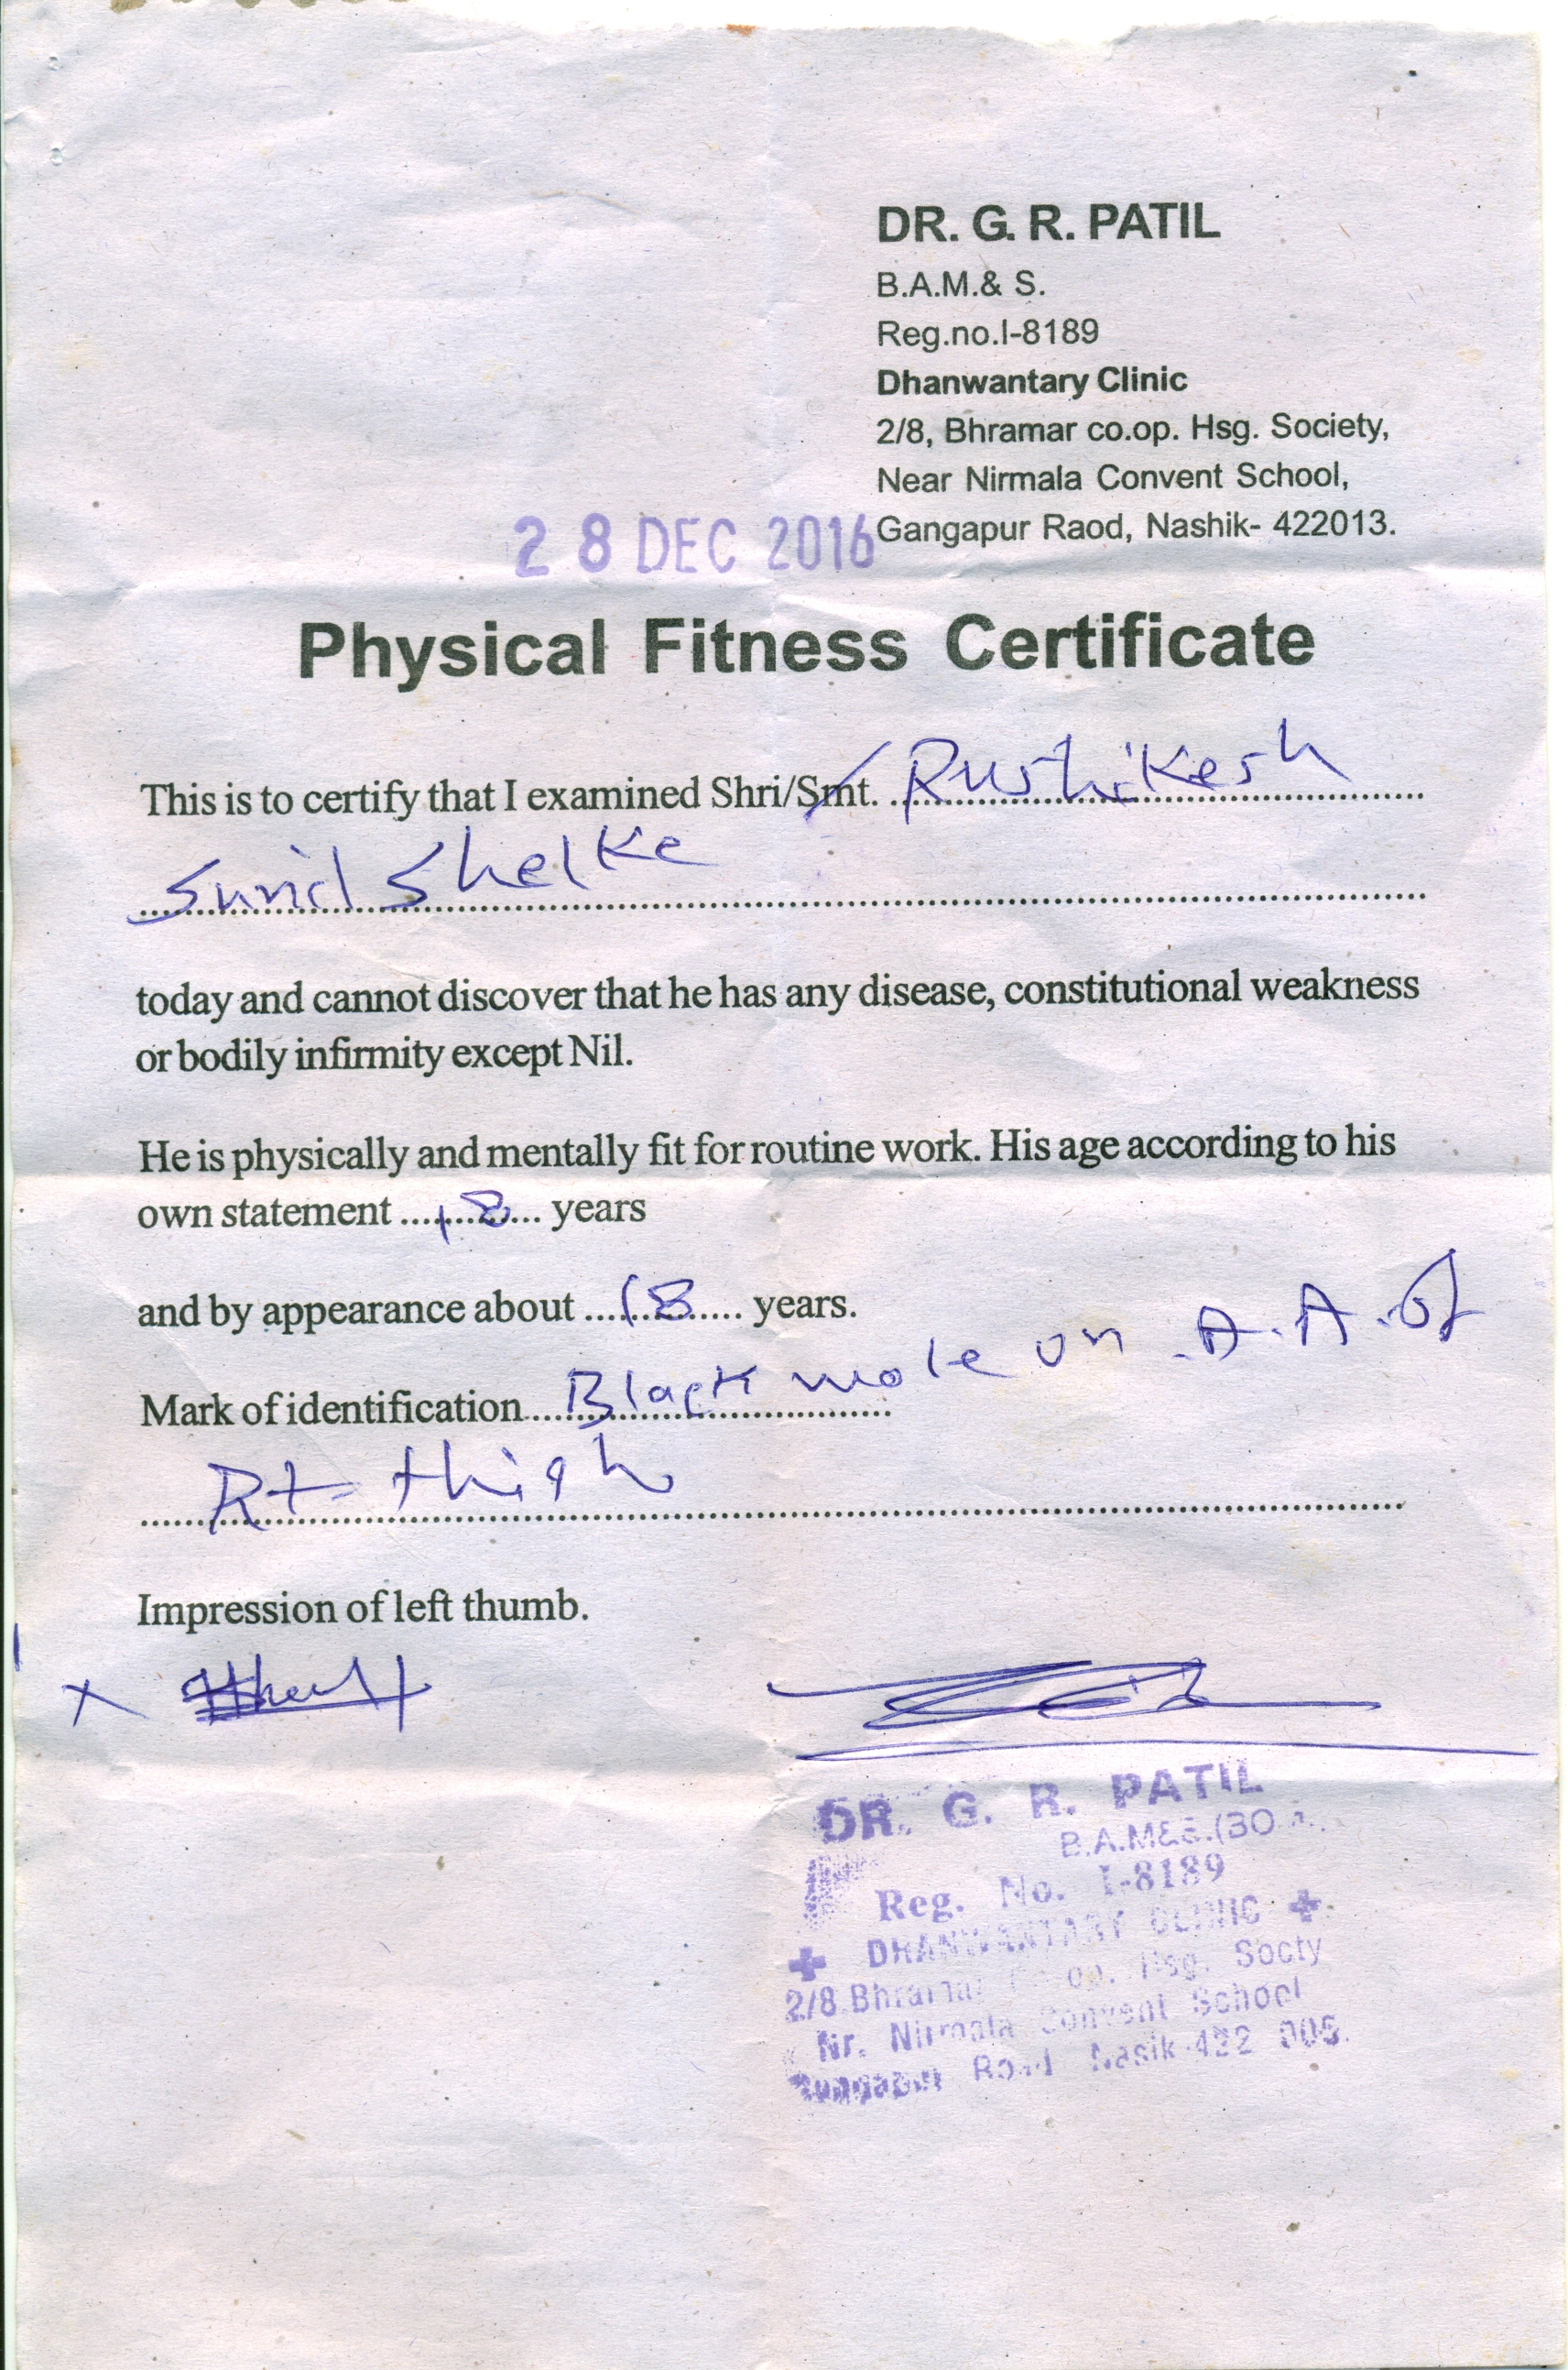 DR. G. R. PATIL
B.A.M.& S.
Reg.no.I-8189
Dhanwantary Clinic
2/8, Bhramar co.op. Hsg. Society,
Near Nirmala Convent School,
Gangapur Raod, Nashik- 422013.
28 DEC 2016
Physical Fitness Certificate
This is to certify that I examined Shri/Smt. Rushikesh
Sunil Shelke
today and cannot discover that he has any disease, constitutional weakness
or bodily infirmity except Nil.
He is physically and mentally fit for routine work. His age according to his
own statement 18 years
and by appearance about 18 years.
Mark of identification Black mole on A.A. of
Rt thigh
Impression of left thumb.
DR. G. R. PATIL
B.A.M&S.
Reg. No. I-8189
DHANWANTARY CLINIC
2/8 Bhramar Co op. Hsg. Socty
Nr. Nirmala Convent School
Gangapur Road Nasik-422 005.